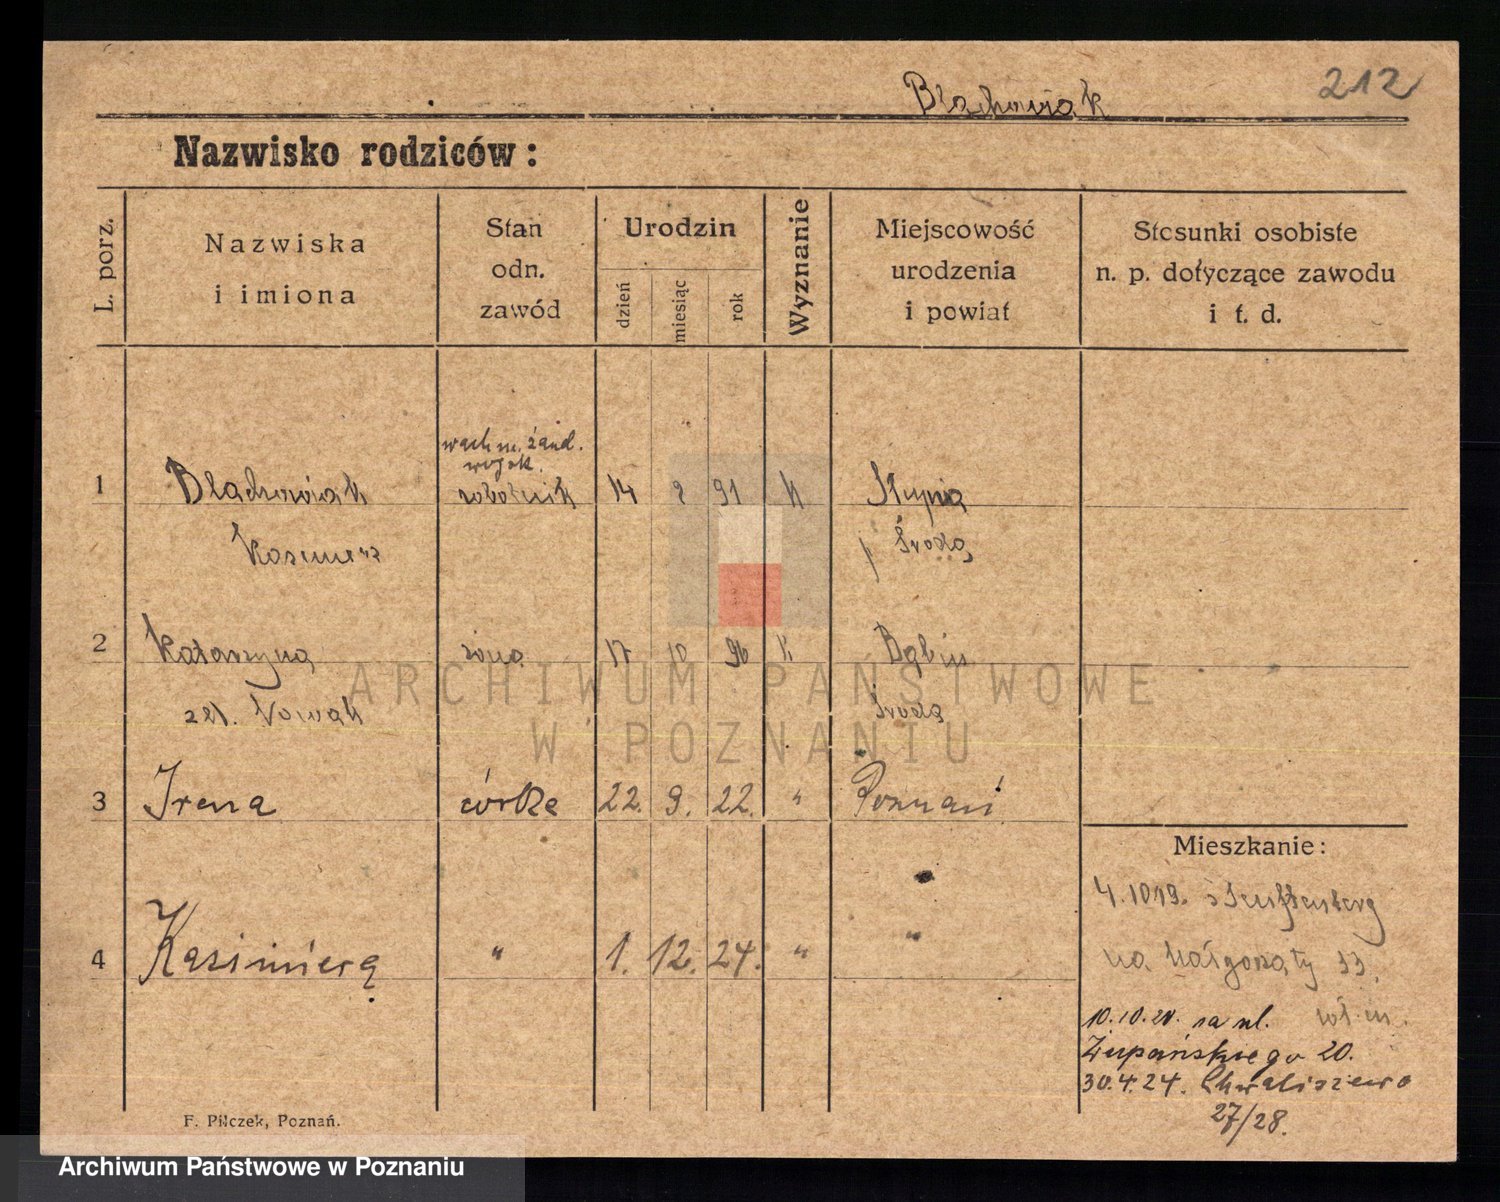 Błachowiak 212
Nazwisko rodziców:
L. porz.
Nazwiska
i imiona
Stan
odn.
zawód
Urodzin
dzień
miesiąc
rok
Wyznanie
Miejscowość
urodzenia
i powiat
Stosunki osobiste
n. p. dotyczące zawodu
i t. d.
wachm. żand.
wojsk.
1 Błachowiak robotnik 14 2 91 K Słupia
Kasimierz p Środa
2 Katarzyna żona 17 10 96 K Bąbin
Nowak Środa
3 Irena córka 22. 9. 22. " Poznań
4 Kasimiera " 1. 12. 24. " "
Mieszkanie:
4.1019. Senftenberg
na Małgorzaty 33.
10.10.20. na ul.
Żupańskiego 20.
30.4.24. Chwaliszewo
27/28.
F. Pilczek, Poznań.
ARCHIWUM PAŃSTWOWE
W POZNANIU
Archiwum Państwowe w Poznaniu